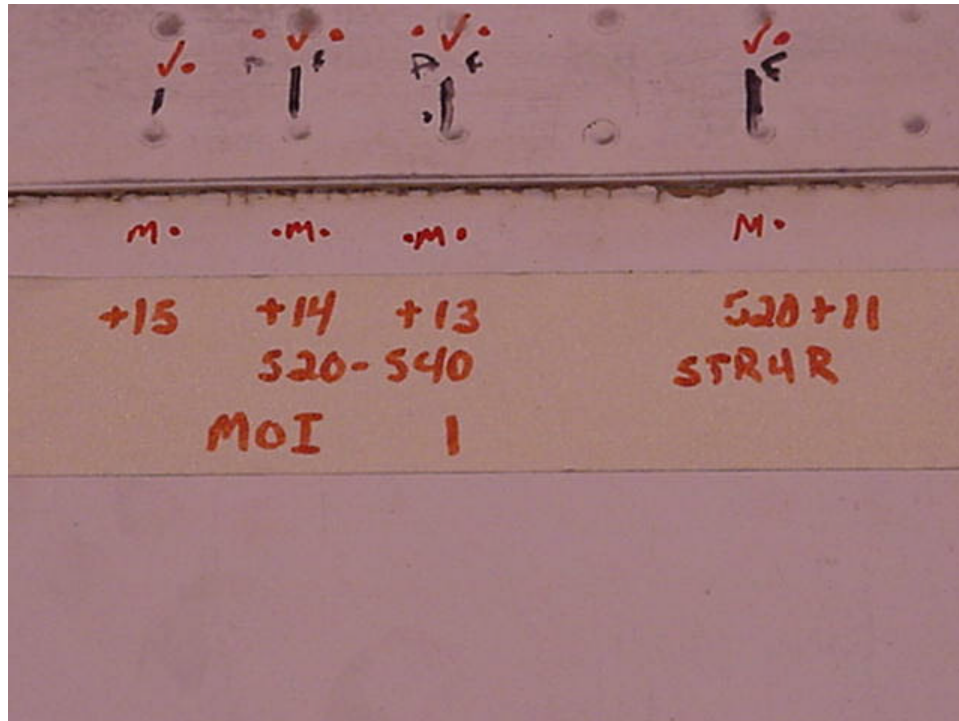 ✓. .✓. .✓. ✓.
F A F F
M. .M. .M. M.
+15 +14 +13 520+11
520-540 STR4R
MOI 1